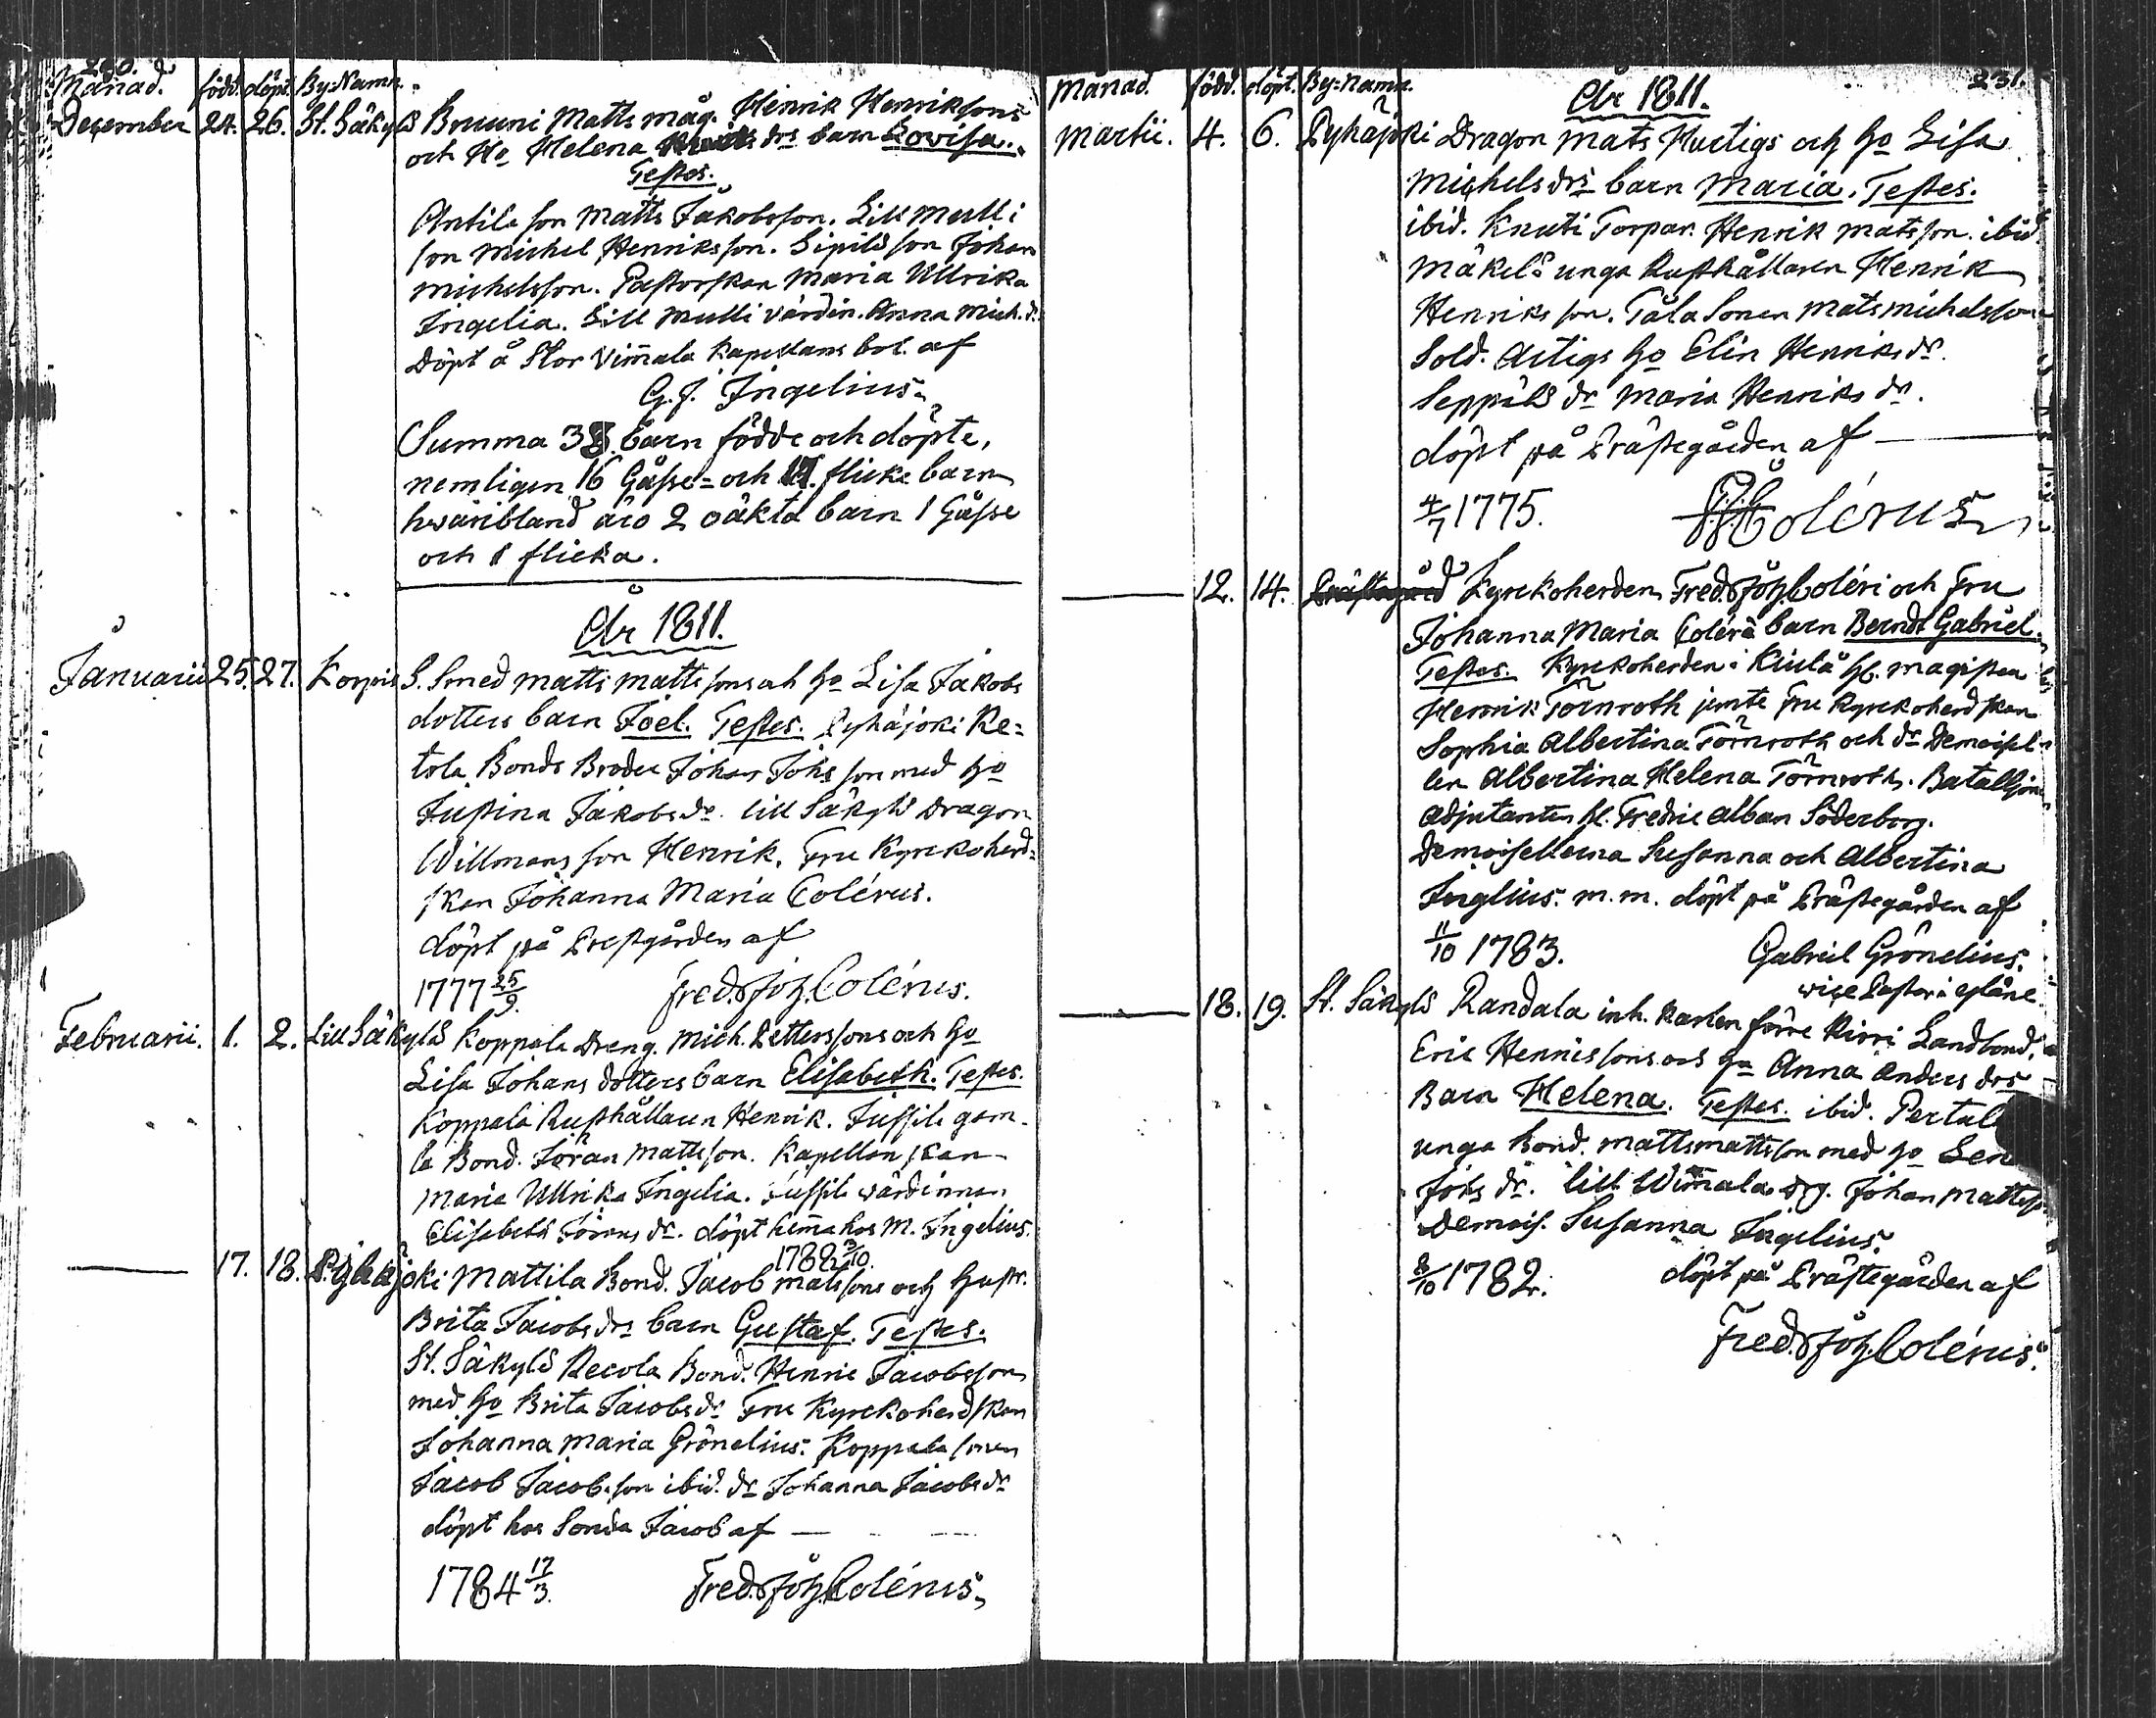 Månad. född. döpt. By-Namn.
December 24. 26. St. Säkylä Bruuni Matts måg. Henrik Henriksons
och Ho Helena drs barn Lovisa.
Testes.
Antila son Matts Jakobsson. Lill Mulli
son Michel Henriksson. Sipilä son Johan
Michelsson. Pastorskan Maria Ullrika
Ingelia. Lill Mulli värdin. Anna Mich. dr
Döpt å Stor Vim̄ala Kapellans bol. af
G. J. Ingelius.
Summa 38. barn födde och döpte,
nemligen 16 Gåsse= och flicke barn
hvaribland äro 2 oäkta barn 1 Gåsse
och 1 flicka.
År 1811.
Januarii 25. 27. Korpis S. Smed Matts Mattssons och ho Lisa Jakobs
dotters barn Joel. Testes. Pyhäjoki Ke=
tola Bonds Broder Johan Johs son med ho
Justina Jakobs dr. Lill Säkylä Dragon
Willmans son Henrik. Fru Kyrckoherd=
skan Johanna Maria Colérus.
döpt på Prestgården af
1777 25/9. Fred. Joh. Colérus.
Februarii. 1. 2. Lill Säkylä Koppala Dreng. Mich. Petterssons och ho
Lisa Johans dotters barn Elisabeth. Testes.
Koppala Rusthållaren Henrik. Jussila gam-
la Bond. Jöran Mattsson. Kapellanskan
Maria Ullrika Ingelia. Jussila wärdinnan
Elisabeth Jörans dr. döpt hem̄a hos M. Ingelius.
1788 3/10.
17. 18. Pyhäjoki Mattila Bond. Jacob Matssons och hustr.
Brita Jacobs drs barn Gustaf. Testes.
St. Säkylä Recola Bond. Henric Jacobsson
med ho Brita Jacobs dr Fru Kyrckoherdskan
Johanna Maria Grönelius. Koppala sonen
Jacob Jacobsson ibid. dr Johanna Jacobs dr
döpt hos bonden Jacob af
1784 17/3. Fred. Joh. Colérus.
Månad. född. döpt. By=namn. År 1811. 231.
Martii. 4. 6. Pyhäjoki Dragon Mats Hurtigs och ho Lisa
Michels drs barn Maria. Testes.
ibid. Knuti Torpar. Henrik Matsson. ibid
Mäkelä unga Rusthållaren Henrik
Henriksson. Tåla Sonen Mats Michelsson
Sold. Artigs ho Elin Henriks dr.
Seppälä dr Maria Henriks dr.
döpt på Prästegården af
4/7 1775. F. J. Colérus
12. 14. Prästegård Kyrckoherden Fred. Joh. Coléri och Fru
Johanna Maria Coléra barn Berndt Gabriel.
Testes. Kyrckoherden i Kiulå hr. magister
Henrik Törnroth jemte Fru Kyrckoherdskan
Sophia Albertina Törnroth och dr Demoisel-
len Albertina Helena Törnroth. Batalljons
Adjutanten hr. Fredric Alban Söderborg.
Demoisellerna Susanna och Albertina
Inglius. m.m. döpt på Prästegården af
11/10 1783. Gabriel Grönelius.
vice Pastor i
18. 19. St. Säkylä Randala inh. karlen förre Kirri Landbond.
Eric Henricssons och ho Anna Anders drs
Barn Helena. Testes. ibid. Pertula
unga Bond. Matts Mattsson med ho Lena
Johs dr. Lill Wim̄ala drg. Johan Mattsson
Demois. Susanna Ingelius.
8/10 1782. döpt på Prästegården af
Fred. Joh. Colérus.